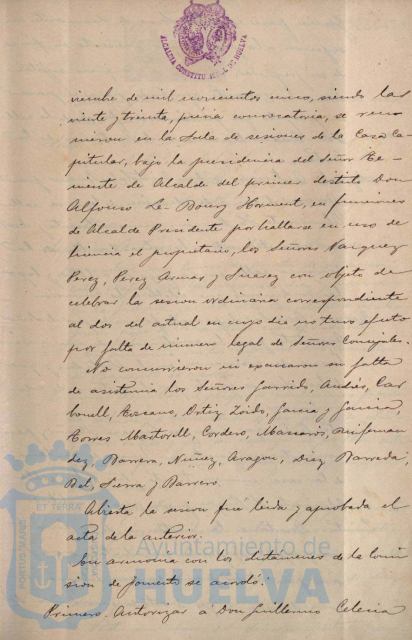 ALCALDIA CONSTITUCIONAL DE HUELVA
viembre de mil novecientos cinco, siendo las
veinte y treinta, previa convocatoria, se reu
nieron en la Sala de sesiones de la Casa Ca-
pitular, bajo la presidencia del Señor Te-
niente de Alcalde del primer distrito Don
Alfonso Le Bourg Horment, en funciones
de Alcalde Presidente por hallarse en uso de
licencia el propietario, los Señores Vazquez
Perez, Perez Armas y Suarez con objeto de
celebrar la sesion ordinaria correspondiente
al dos del actual en cuyo dia no tuvo efecto
por falta de numero legal de Señores Concejales.
No concurrieron ni excusaron su falta
de asistencia los Señores Garrido, Andrés, Car
bonell, Toscano, Ortiz Zoido, Garcia y Garcia,
Torres Martorell, Cordero, Massaros,
dez, Barrera, Nuñez, Aragon, Diaz Barreda,
Bel, Sierra y Barrero.
Abierta la sesion fué leida y aprobada el
acta de la anterior.
En armonia con los dictámenes de la Comi
sion de fomento se acordó:
Primero. Autorizar a Don Guillermo Celecia
ET TERRÆ
PORTUS MARIS
Ayuntamiento de
HUELVA